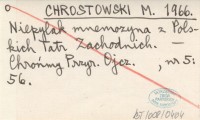 CHROSTOWSKI M. 1966.
Niepylak mnemozyna z Pols-
kich Tatr Zachodnich.
Chrońmy Przyr. Ojcz. , nr 5:
56.